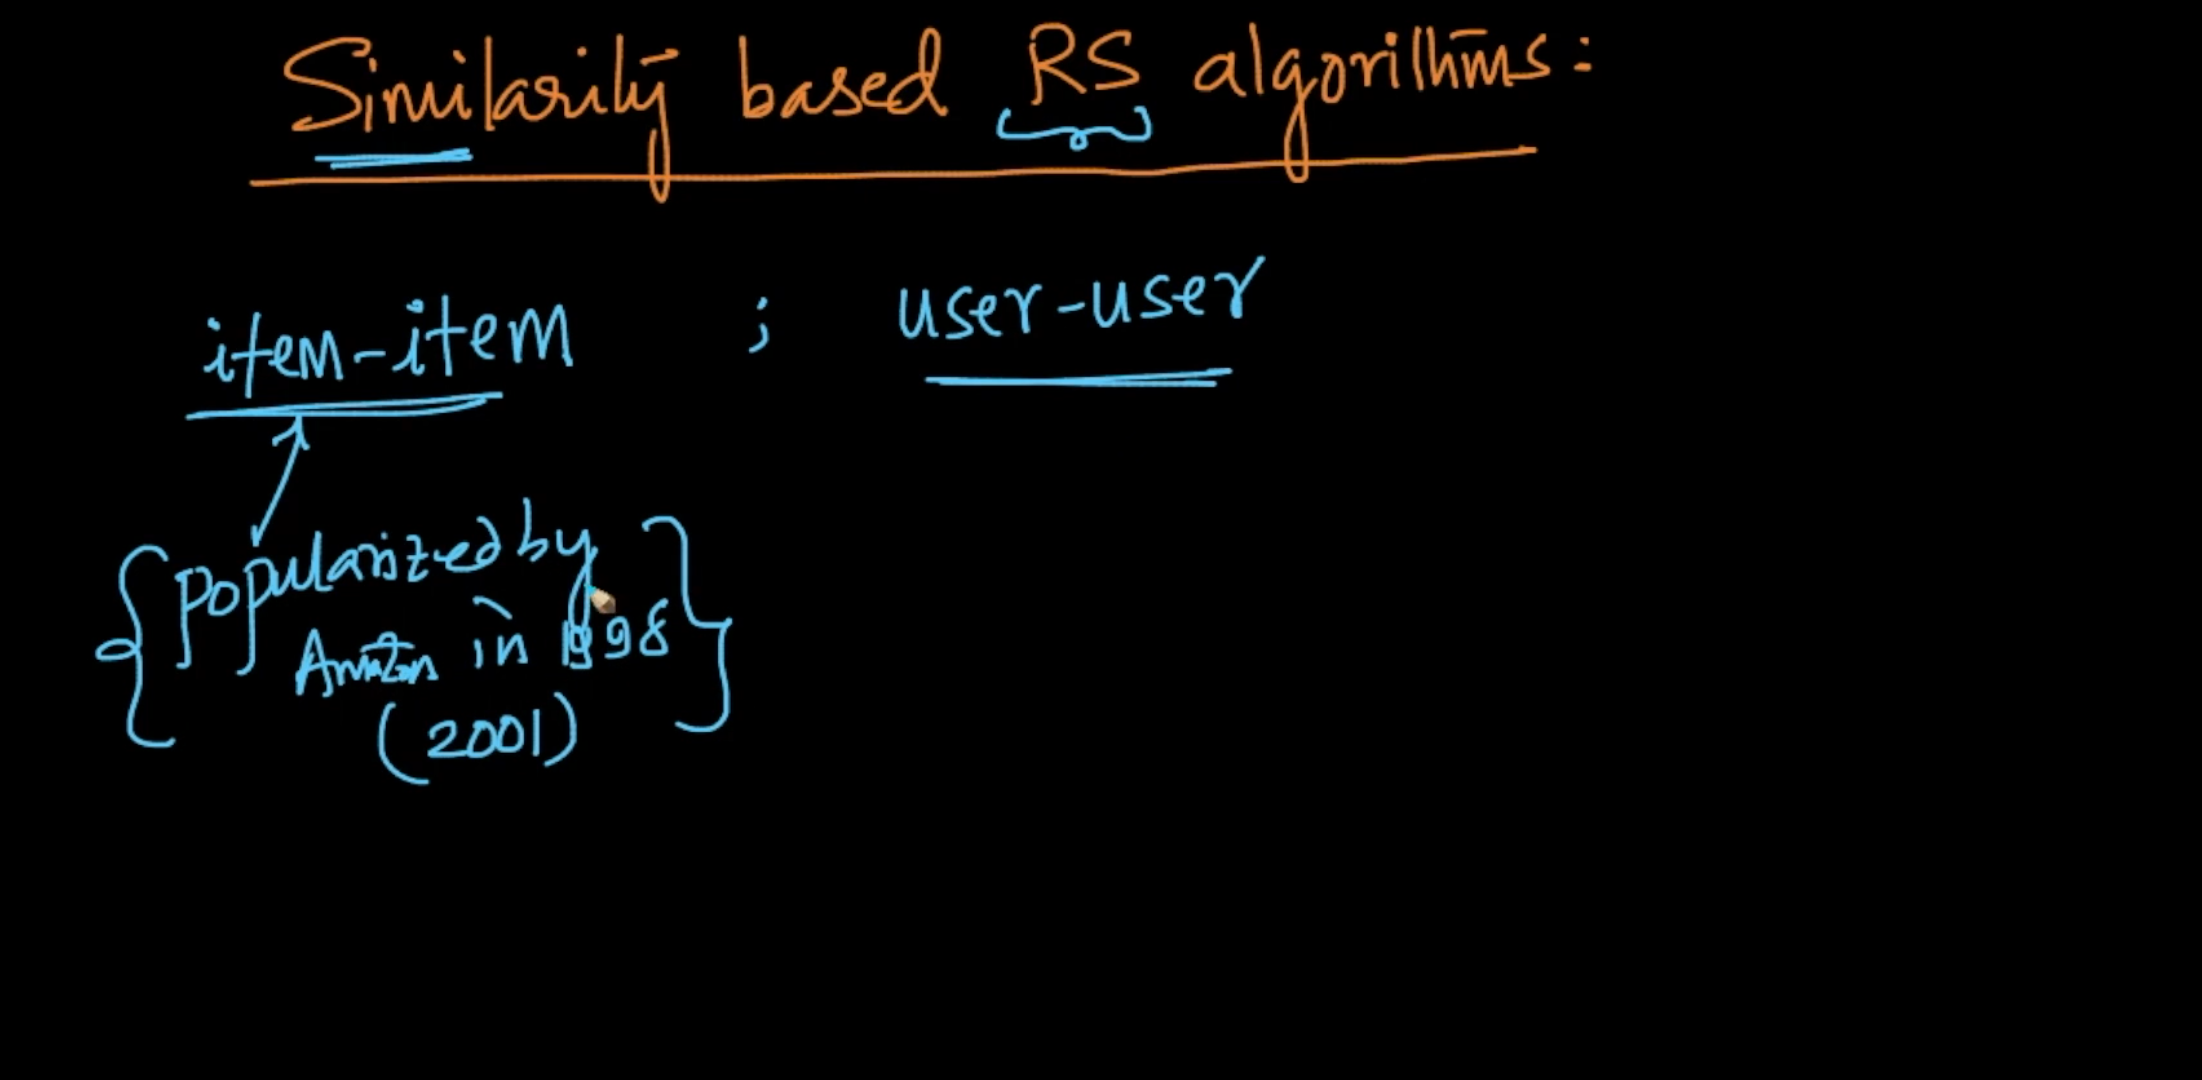 Similarity based RS algorithms:
item-item ; user-user
Popularized by
Amazon in 1998
(2001)